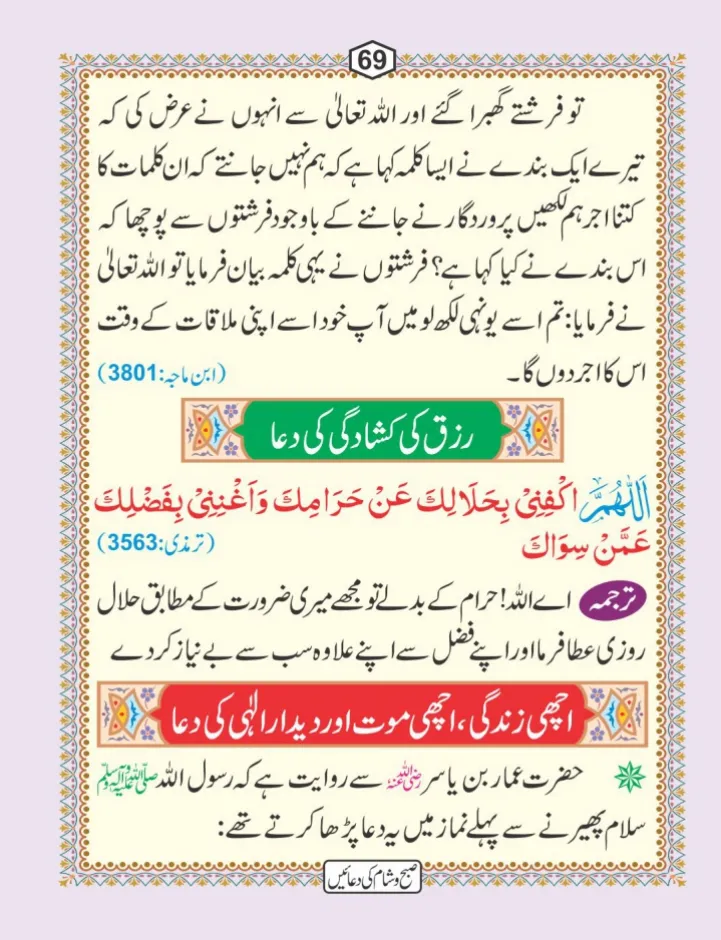 69
تو فرشتے گھبرا گئے اور اللہ تعالیٰ سے انہوں نے عرض کی کہ
تیرے ایک بندے نے ایسا کلمہ کہا ہے کہ ہم نہیں جانتے کہ ان کلمات کا
کتنا اجر ہم لکھیں پروردگار نے جاننے کے باوجود فرشتوں سے پوچھا کہ
اس بندے نے کیا کہا ہے؟ فرشتوں نے یہی کلمہ بیان فرمایا تو اللہ تعالیٰ
نے فرمایا: تم اسے یونہی لکھ لو میں آپ خود اسے اپنی ملاقات کے وقت
اس کا اجر دوں گا۔ (ابن ماجہ: 3801)
رزق کی کشادگی کی دعا
اَللّٰهُمَّ اكْفِنِيْ بِحَلَالِكَ عَنْ حَرَامِكَ وَاَغْنِنِيْ بِفَضْلِكَ
عَمَّنْ سِوَاكَ (ترمذی: 3563)
ترجمہ اے اللہ! حرام کے بدلے تو مجھے میری ضرورت کے مطابق حلال
روزی عطا فرما اور اپنے فضل سے اپنے علاوہ سب سے بے نیاز کر دے
اچھی زندگی، اچھی موت اور دیدار الٰہی کی دعا
حضرت عمار بن یاسر رضی اللہ عنہ سے روایت ہے کہ رسول اللہ صلی اللہ علیہ وآلہ وسلم
سلام پھیرنے سے پہلے نماز میں یہ دعا پڑھا کرتے تھے:
صبح و شام کی دعائیں